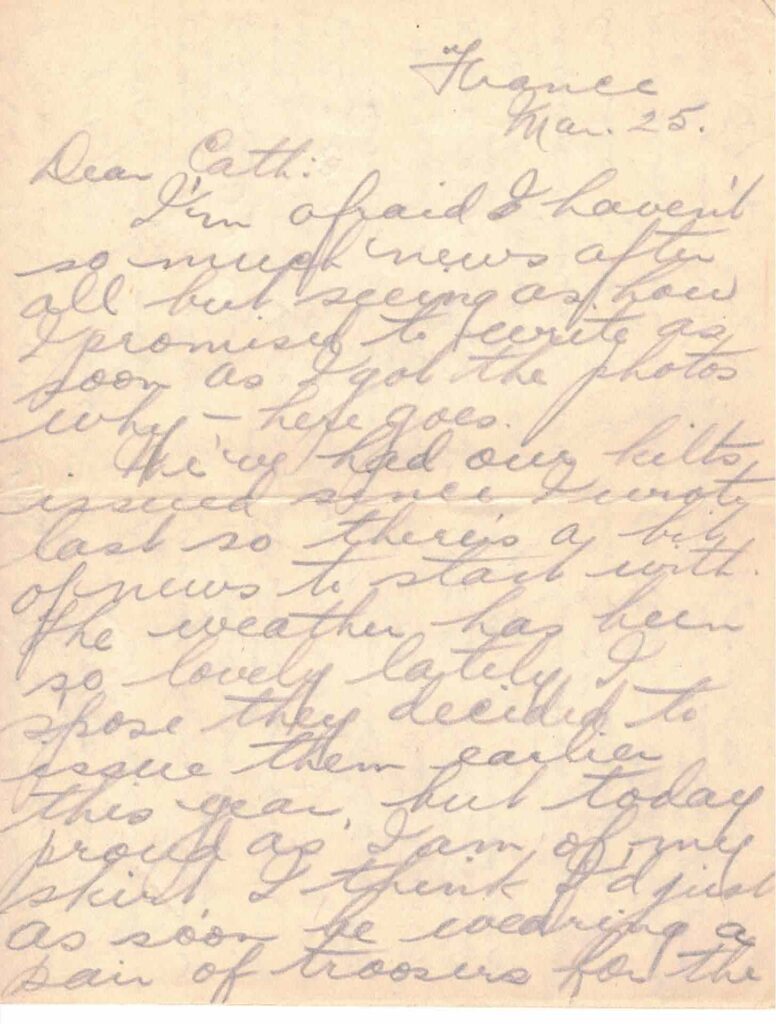 France
Mar. 25.
Dear Cath:
I'm afraid I haven't
so much news after
all but seeing as how
I promised to write as
soon as I got the photos
why – here goes.
We've had our kilts
issued since I wrote
last so there's a bit
of news to start with.
The weather has been
so lovely lately I
s'pose they decided to
issue them earlier
this year, but today
proud as I am of my
skirt I think I'd just
as soon be wearing a
pair of troosers for the